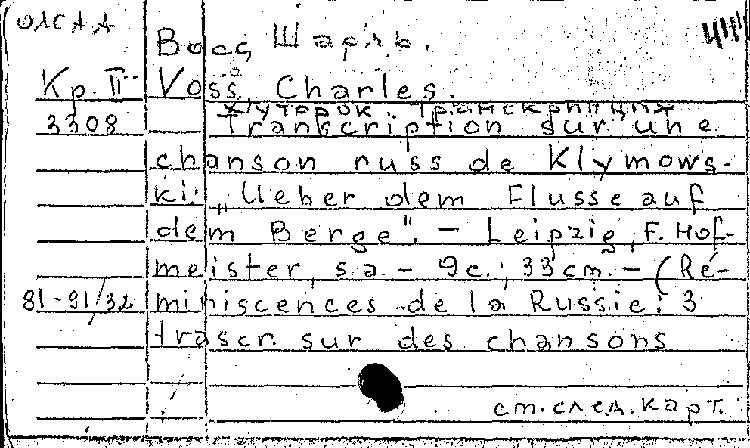 Восс, Шарль.
Кр. II
Voss, Charles.
Хуторок. Транскрипция
3308
Transcription sur une
chanson russ de Klymows-
ki: "Ueber dem Flusse auf
dem Berge". - Leipzig, F. Hof-
meister, s.a. - 9c.; 33cm. - (Ré-
81-91/32
miniscences de la Russie: 3
trascr. sur des chansons
см. след. карт.